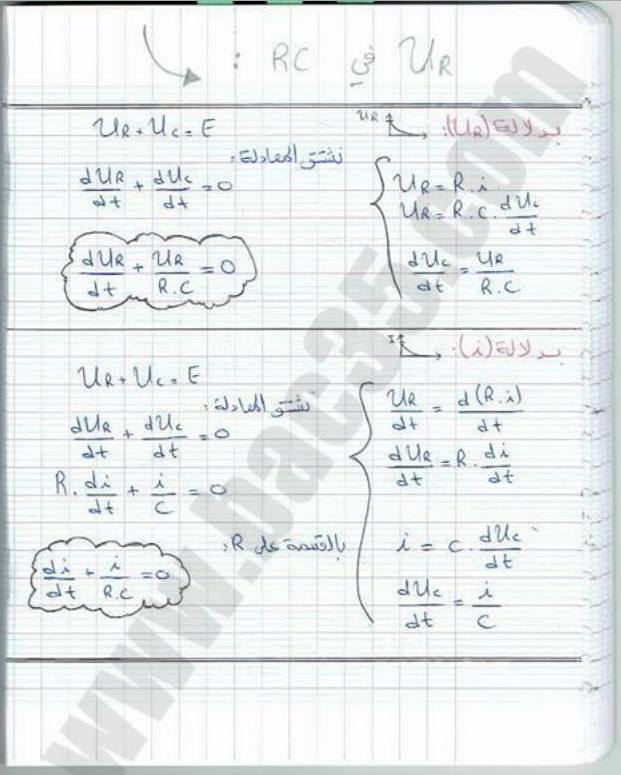 U_R في RC :
بدلالة (U_R):
U_R
U_R + U_c = E
نشتق المعادلة:
dU_R/dt + dU_c/dt = 0
dU_R/dt + U_R/R.C = 0
U_R = R.i
U_R = R.C.dU_c/dt
dU_c/dt = U_R/R.C
بدلالة (i):
I
U_R + U_c = E
نشتق المعادلة:
dU_R/dt + dU_c/dt = 0
R.di/dt + i/C = 0
بالقسمة على R:
di/dt + i/R.C = 0
U_R/dt = d(R.i)/dt
dU_R/dt = R.di/dt
i = C.dU_c/dt
dU_c/dt = i/C
www.bac35.com